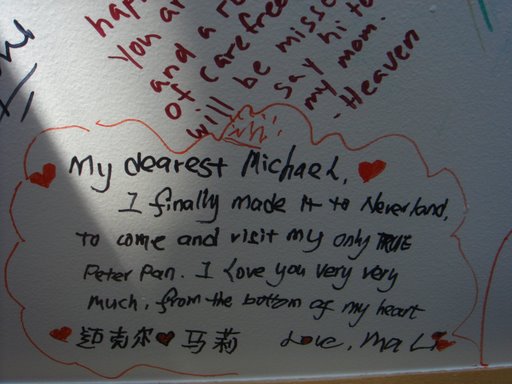 happ
You ar
and a r
of carefree
will be misse
say hi to
my mom.
-Heaven
My dearest Michael,
I finally made it to Neverland,
to come and visit my only TRUE
Peter Pan. I love you very very
much, from the bottom of my heart
迈克尔 马莉 Love, Ma Li